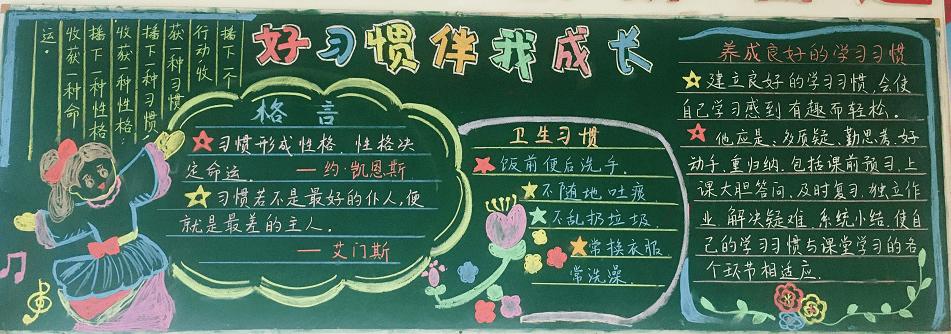 好习惯伴我成长
播下一个
行动收
获一种习惯
播下一种习惯,
收获一种性格.
播下一种性格
收获一种命
运.
格言
习惯形成性格,性格决
定命运.——约·凯恩斯
习惯若不是最好的仆人,便
就是最差的主人.
——艾门斯
卫生习惯
饭前便后洗手.
不随地吐痰
不乱扔垃圾
常换衣服
常洗澡.
养成良好的学习习惯
建立良好的学习习惯,会使
自己学习感到有趣而轻松.
他应是、多质疑、勤思考、好
动手、重归纳.包括课前预习、上
课大胆答问、及时复习、独立作
业、解决疑难、系统小结,使自
己的学习习惯与课堂学习的各
个环节相适应.